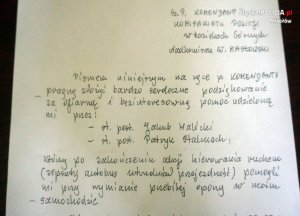 SLASKAPOLICJA.PL
Mikołów
Sz. P. KOMENDANT
KOMISARIATU POLICJI
w Łaziskach Górnych
nadkomisarz W. MASŁOWSKI
Pismem niniejszym na ręce p. KOMENDANTA
pragnę złożyć bardzo serdeczne podziękowanie
za ofiarną i bezinteresowną pomoc udzieloną
mi przez:
– st. post. Jakub Walicki
– st. post. Patryk Stalmach,
którzy po zakończeniu akcji kierowania ruchem
(zepsuty autobus utrudniał przejezdność) pomogli
mi przy wymianie przebitej opony w moim
samochodzie.